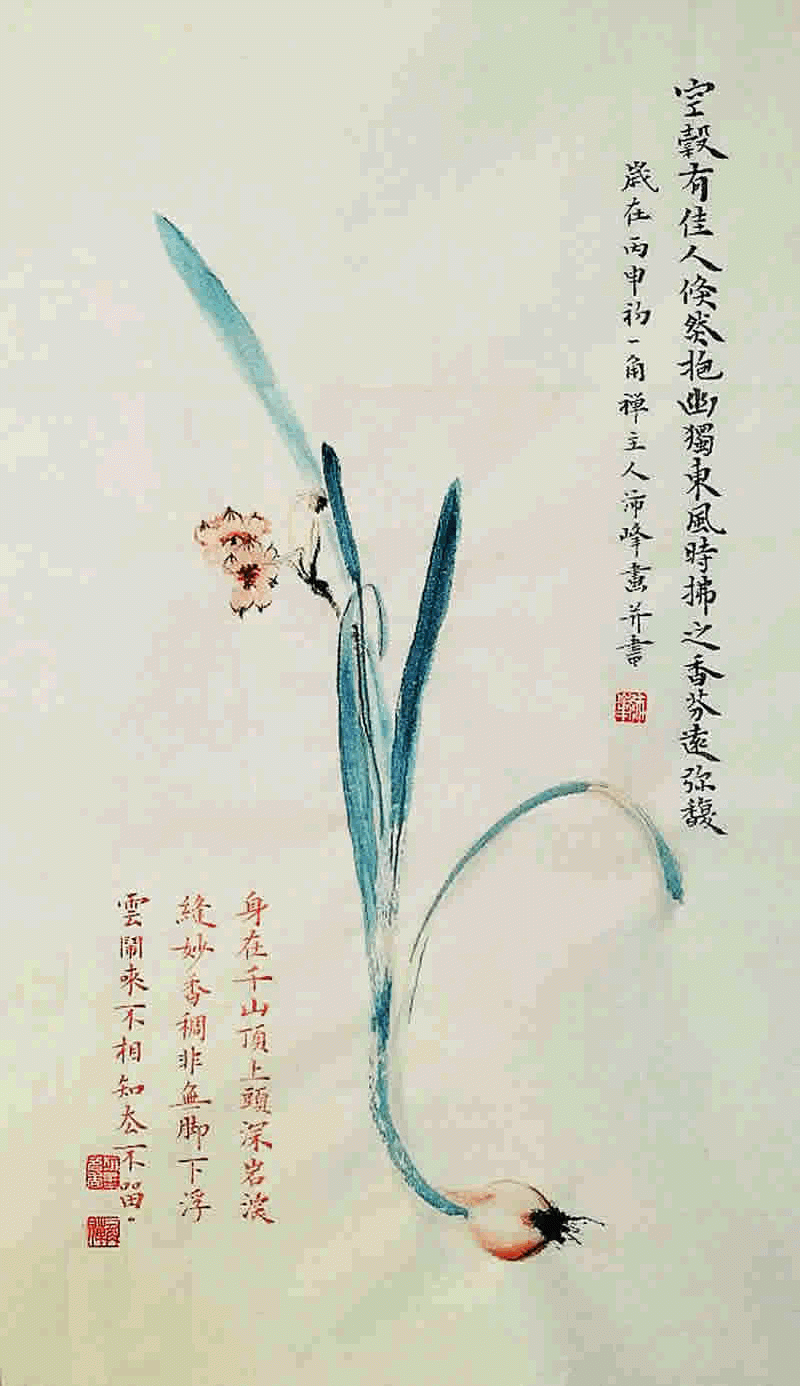 空穀有佳人倏然抱幽獨東風時拂之香芬遠弥馥
歲在丙申初一角禅主人沛峰畫并書
身在千山頂上頭深岩淡
縫妙香稠非無脚下浮
雲鬧来不相知去不留